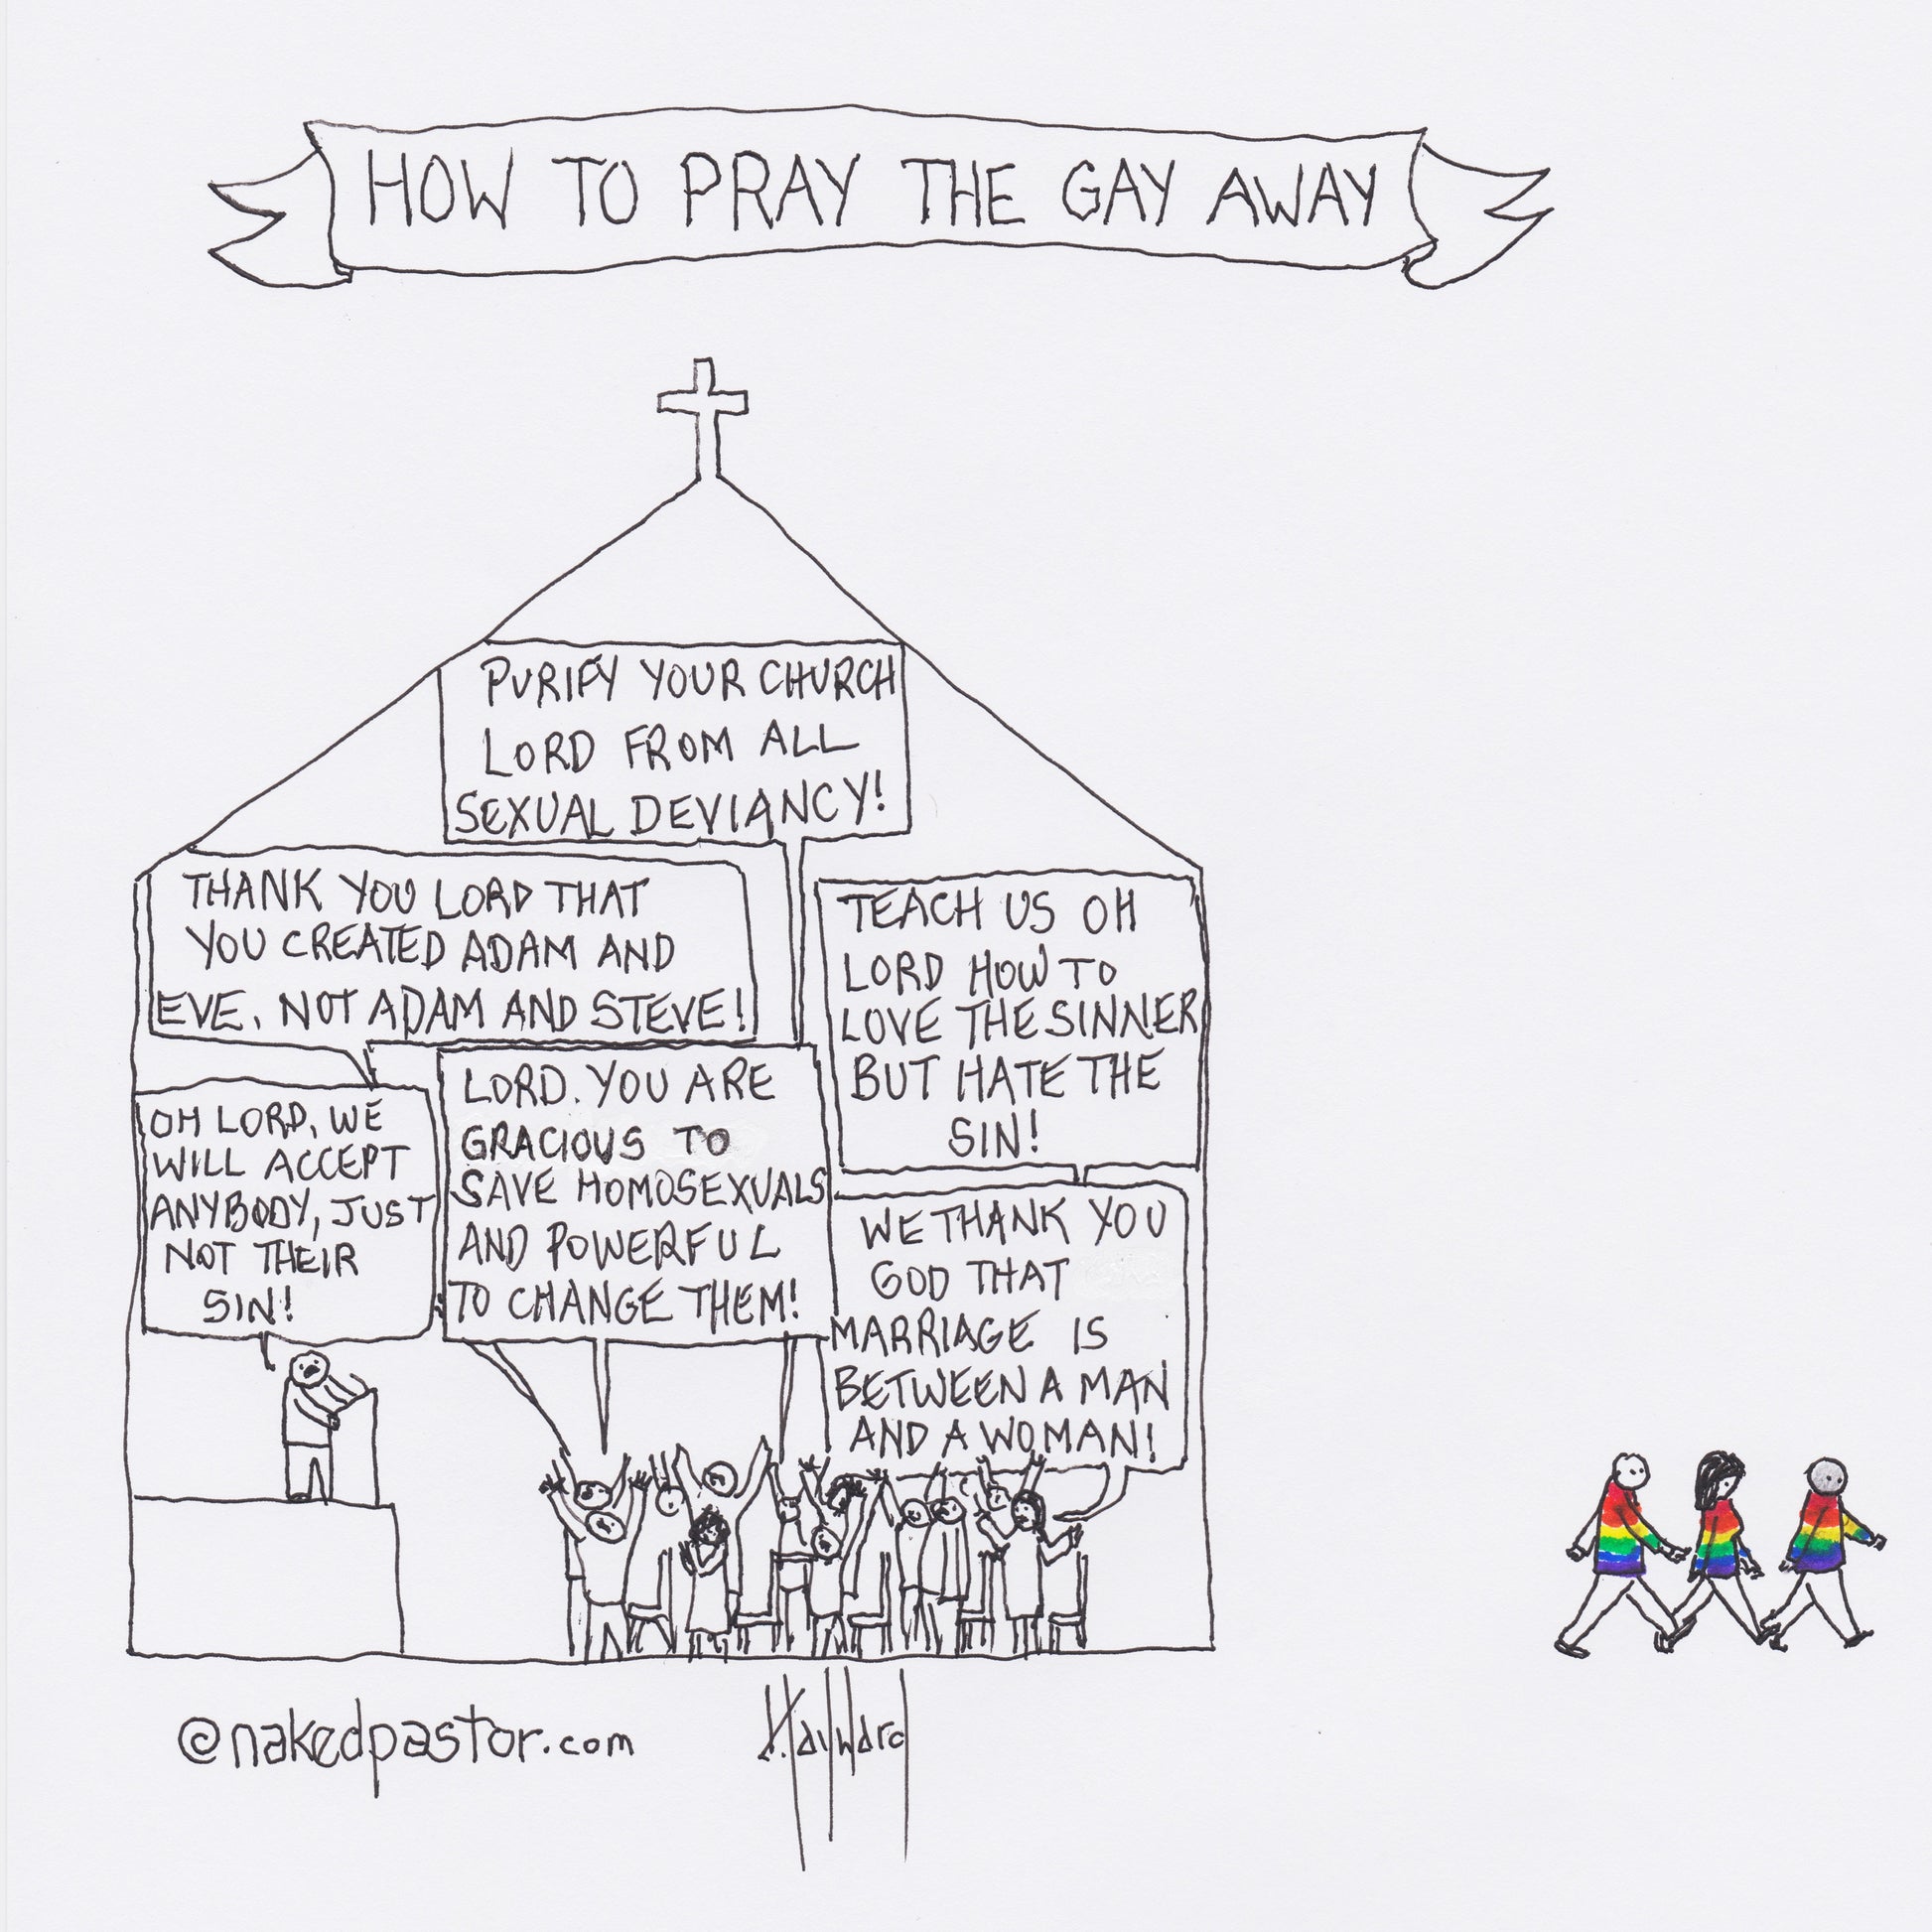 HOW TO PRAY THE GAY AWAY
PURIFY YOUR CHURCH
LORD FROM ALL
SEXUAL DEVIANCY!
THANK YOU LORD THAT
YOU CREATED ADAM AND
EVE, NOT ADAM AND STEVE!
TEACH US OH
LORD HOW TO
LOVE THE SINNER
BUT HATE THE
SIN!
OH LORD, WE
WILL ACCEPT
ANYBODY, JUST
NOT THEIR
SIN!
LORD. YOU ARE
GRACIOUS TO
SAVE HOMOSEXUALS
AND POWERFUL
TO CHANGE THEM!
WE THANK YOU
GOD THAT
MARRIAGE IS
BETWEEN A MAN
AND A WOMAN!
@nakedpastor.com
Hayward